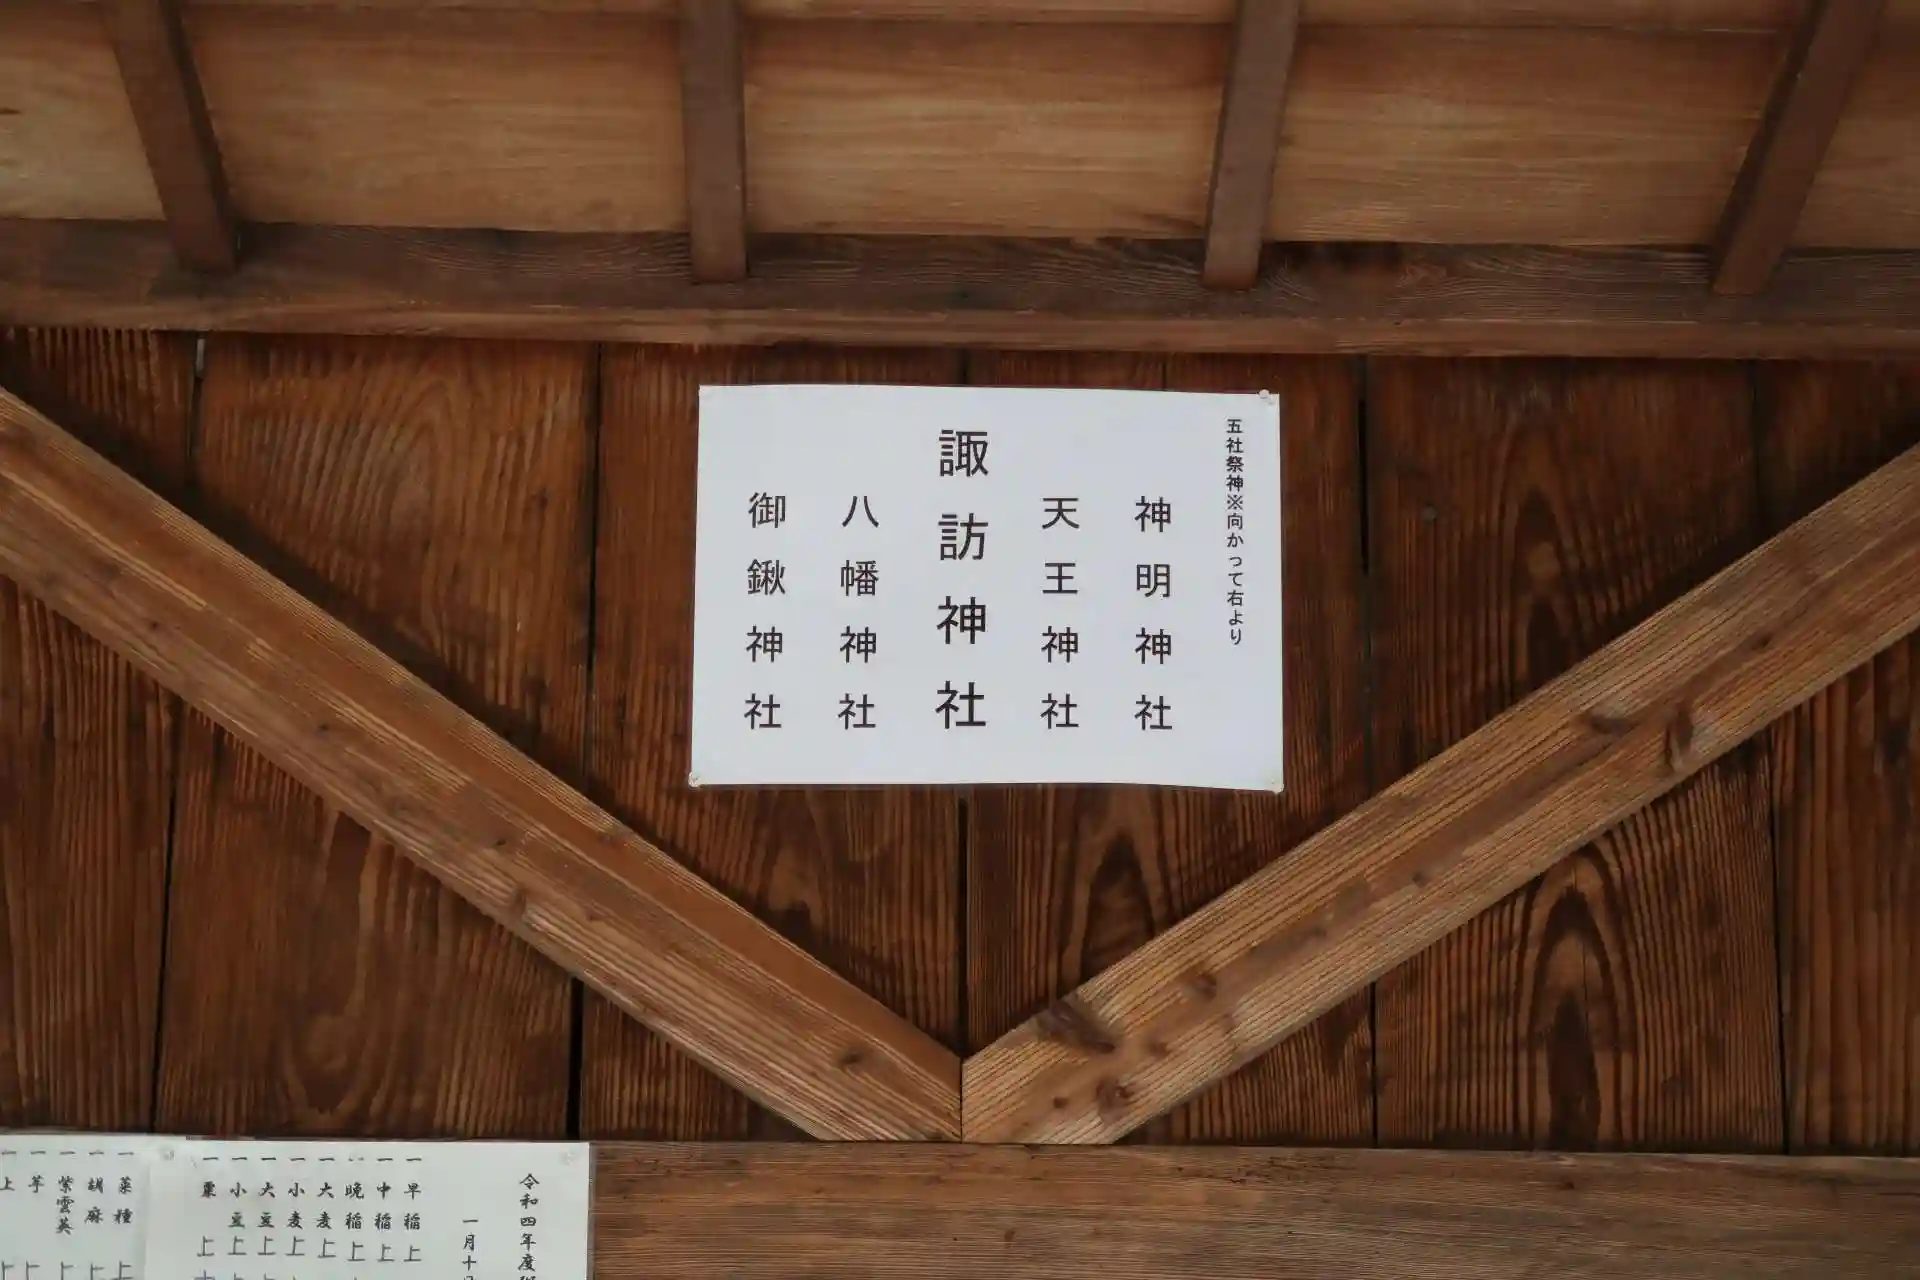 五社祭神※向かって右より
神明神社
天王神社
諏訪神社
八幡神社
御鍬神社
令和四年度
一月十
一早稲上
一中稲上
一晩稲上
一大麦上
一小麦上
一大豆上
一小豆上
一粟上
一菜種上
一胡麻上
一紫雲英上
一芋上
上